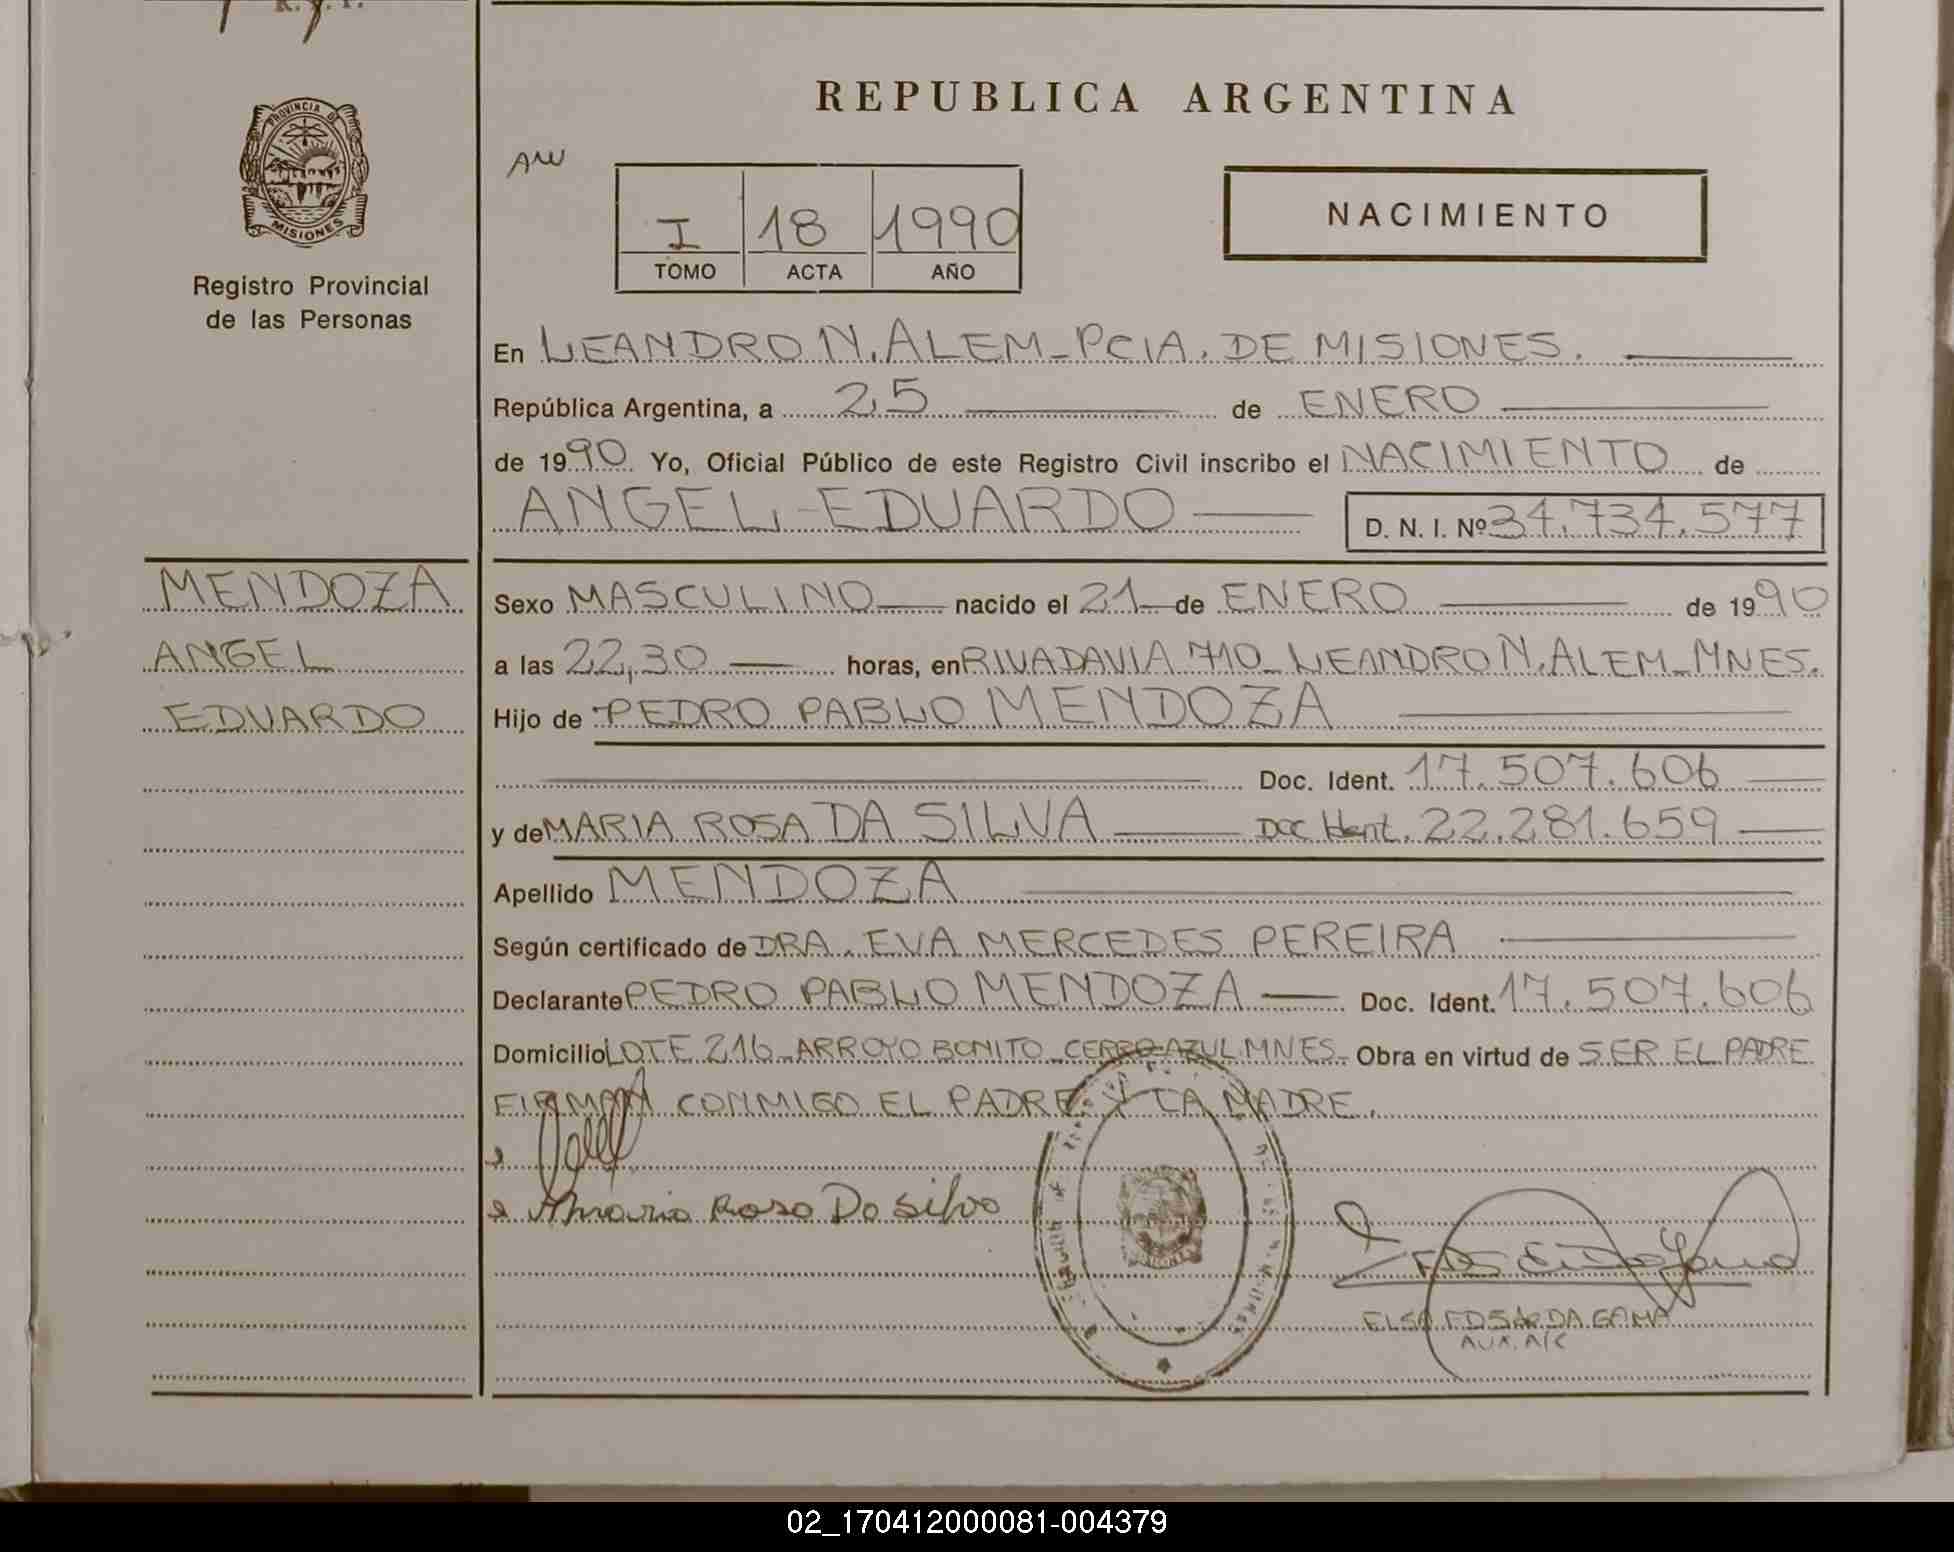 PROVINCIA DE
MISIONES
Registro Provincial
de las Personas
REPUBLICA ARGENTINA
AW
I 18 1990
TOMO ACTA AÑO
NACIMIENTO
En LEANDRO N. ALEM - PCIA. DE MISIONES.
República Argentina, a 25 de ENERO
de 1990 Yo, Oficial Público de este Registro Civil inscribo el NACIMIENTO de
ANGEL EDUARDO D. N. I. Nº 34.734.577
MENDOZA
ANGEL
EDUARDO
Sexo MASCULINO nacido el 21 de ENERO de 1990
a las 22,30 horas, en RIVADAVIA 710 - LEANDRO N. ALEM - MNES.
Hijo de PEDRO PABLO MENDOZA
Doc. Ident. 17.507.606
y de MARIA ROSA DA SILVA Doc Ident. 22.281.659
Apellido MENDOZA
Según certificado de DRA. EVA MERCEDES PEREIRA
Declarante PEDRO PABLO MENDOZA Doc. Ident. 17.507.606
Domicilio LOTE 216 - ARROYO BONITO - CERRO AZUL MNES - Obra en virtud de SER EL PADRE
FIRMAN CONMIGO EL PADRE Y LA MADRE.
Maria Rosa Da Silva
ELSA EDSAR DA GAMA
AUX. A/C
02_170412000081-004379